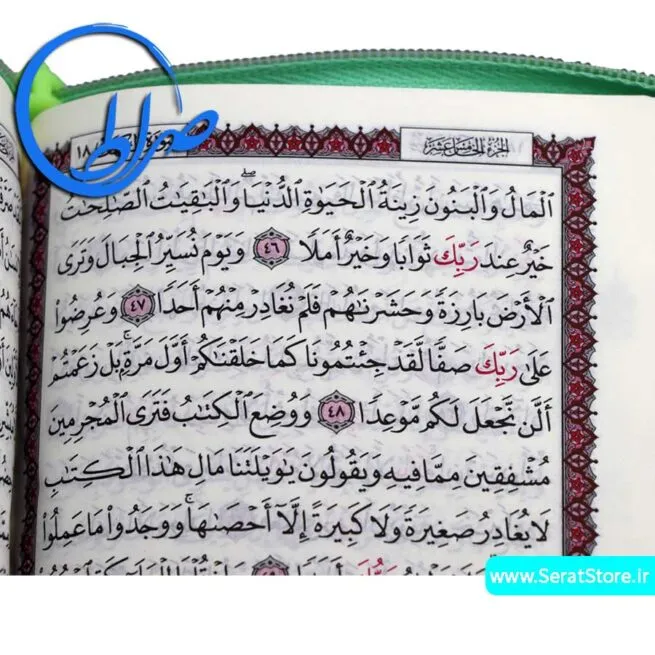 صراط
الجزء الخامس عشر
ٱلۡمَالُ وَٱلۡبَنُونَ زِينَةُ ٱلۡحَيَوٰةِ ٱلدُّنۡيَاۖ وَٱلۡبَٰقِيَٰتُ ٱلصَّٰلِحَٰتُ
خَيۡرٌ عِندَ رَبِّكَ ثَوَابٗا وَخَيۡرٌ أَمَلٗا ٤٦ وَيَوۡمَ نُسَيِّرُ ٱلۡجِبَالَ وَتَرَى
ٱلۡأَرۡضَ بَارِزَةٗ وَحَشَرۡنَٰهُمۡ فَلَمۡ نُغَادِرۡ مِنۡهُمۡ أَحَدٗا ٤٧ وَعُرِضُواْ
عَلَىٰ رَبِّكَ صَفّٗا لَّقَدۡ جِئۡتُمُونَا كَمَا خَلَقۡنَٰكُمۡ أَوَّلَ مَرَّةِۭۚ بَلۡ زَعَمۡتُمۡ
أَلَّن نَّجۡعَلَ لَكُم مَّوۡعِدٗا ٤٨ وَوُضِعَ ٱلۡكِتَٰبُ فَتَرَى ٱلۡمُجۡرِمِينَ
مُشۡفِقِينَ مِمَّا فِيهِ وَيَقُولُونَ يَٰوَيۡلَتَنَا مَالِ هَٰذَا ٱلۡكِتَٰبِ
لَا يُغَادِرُ صَغِيرَةٗ وَلَا كَبِيرَةً إِلَّآ أَحۡصَىٰهَاۚ وَوَجَدُواْ مَا عَمِلُواْ
www.SeratStore.ir